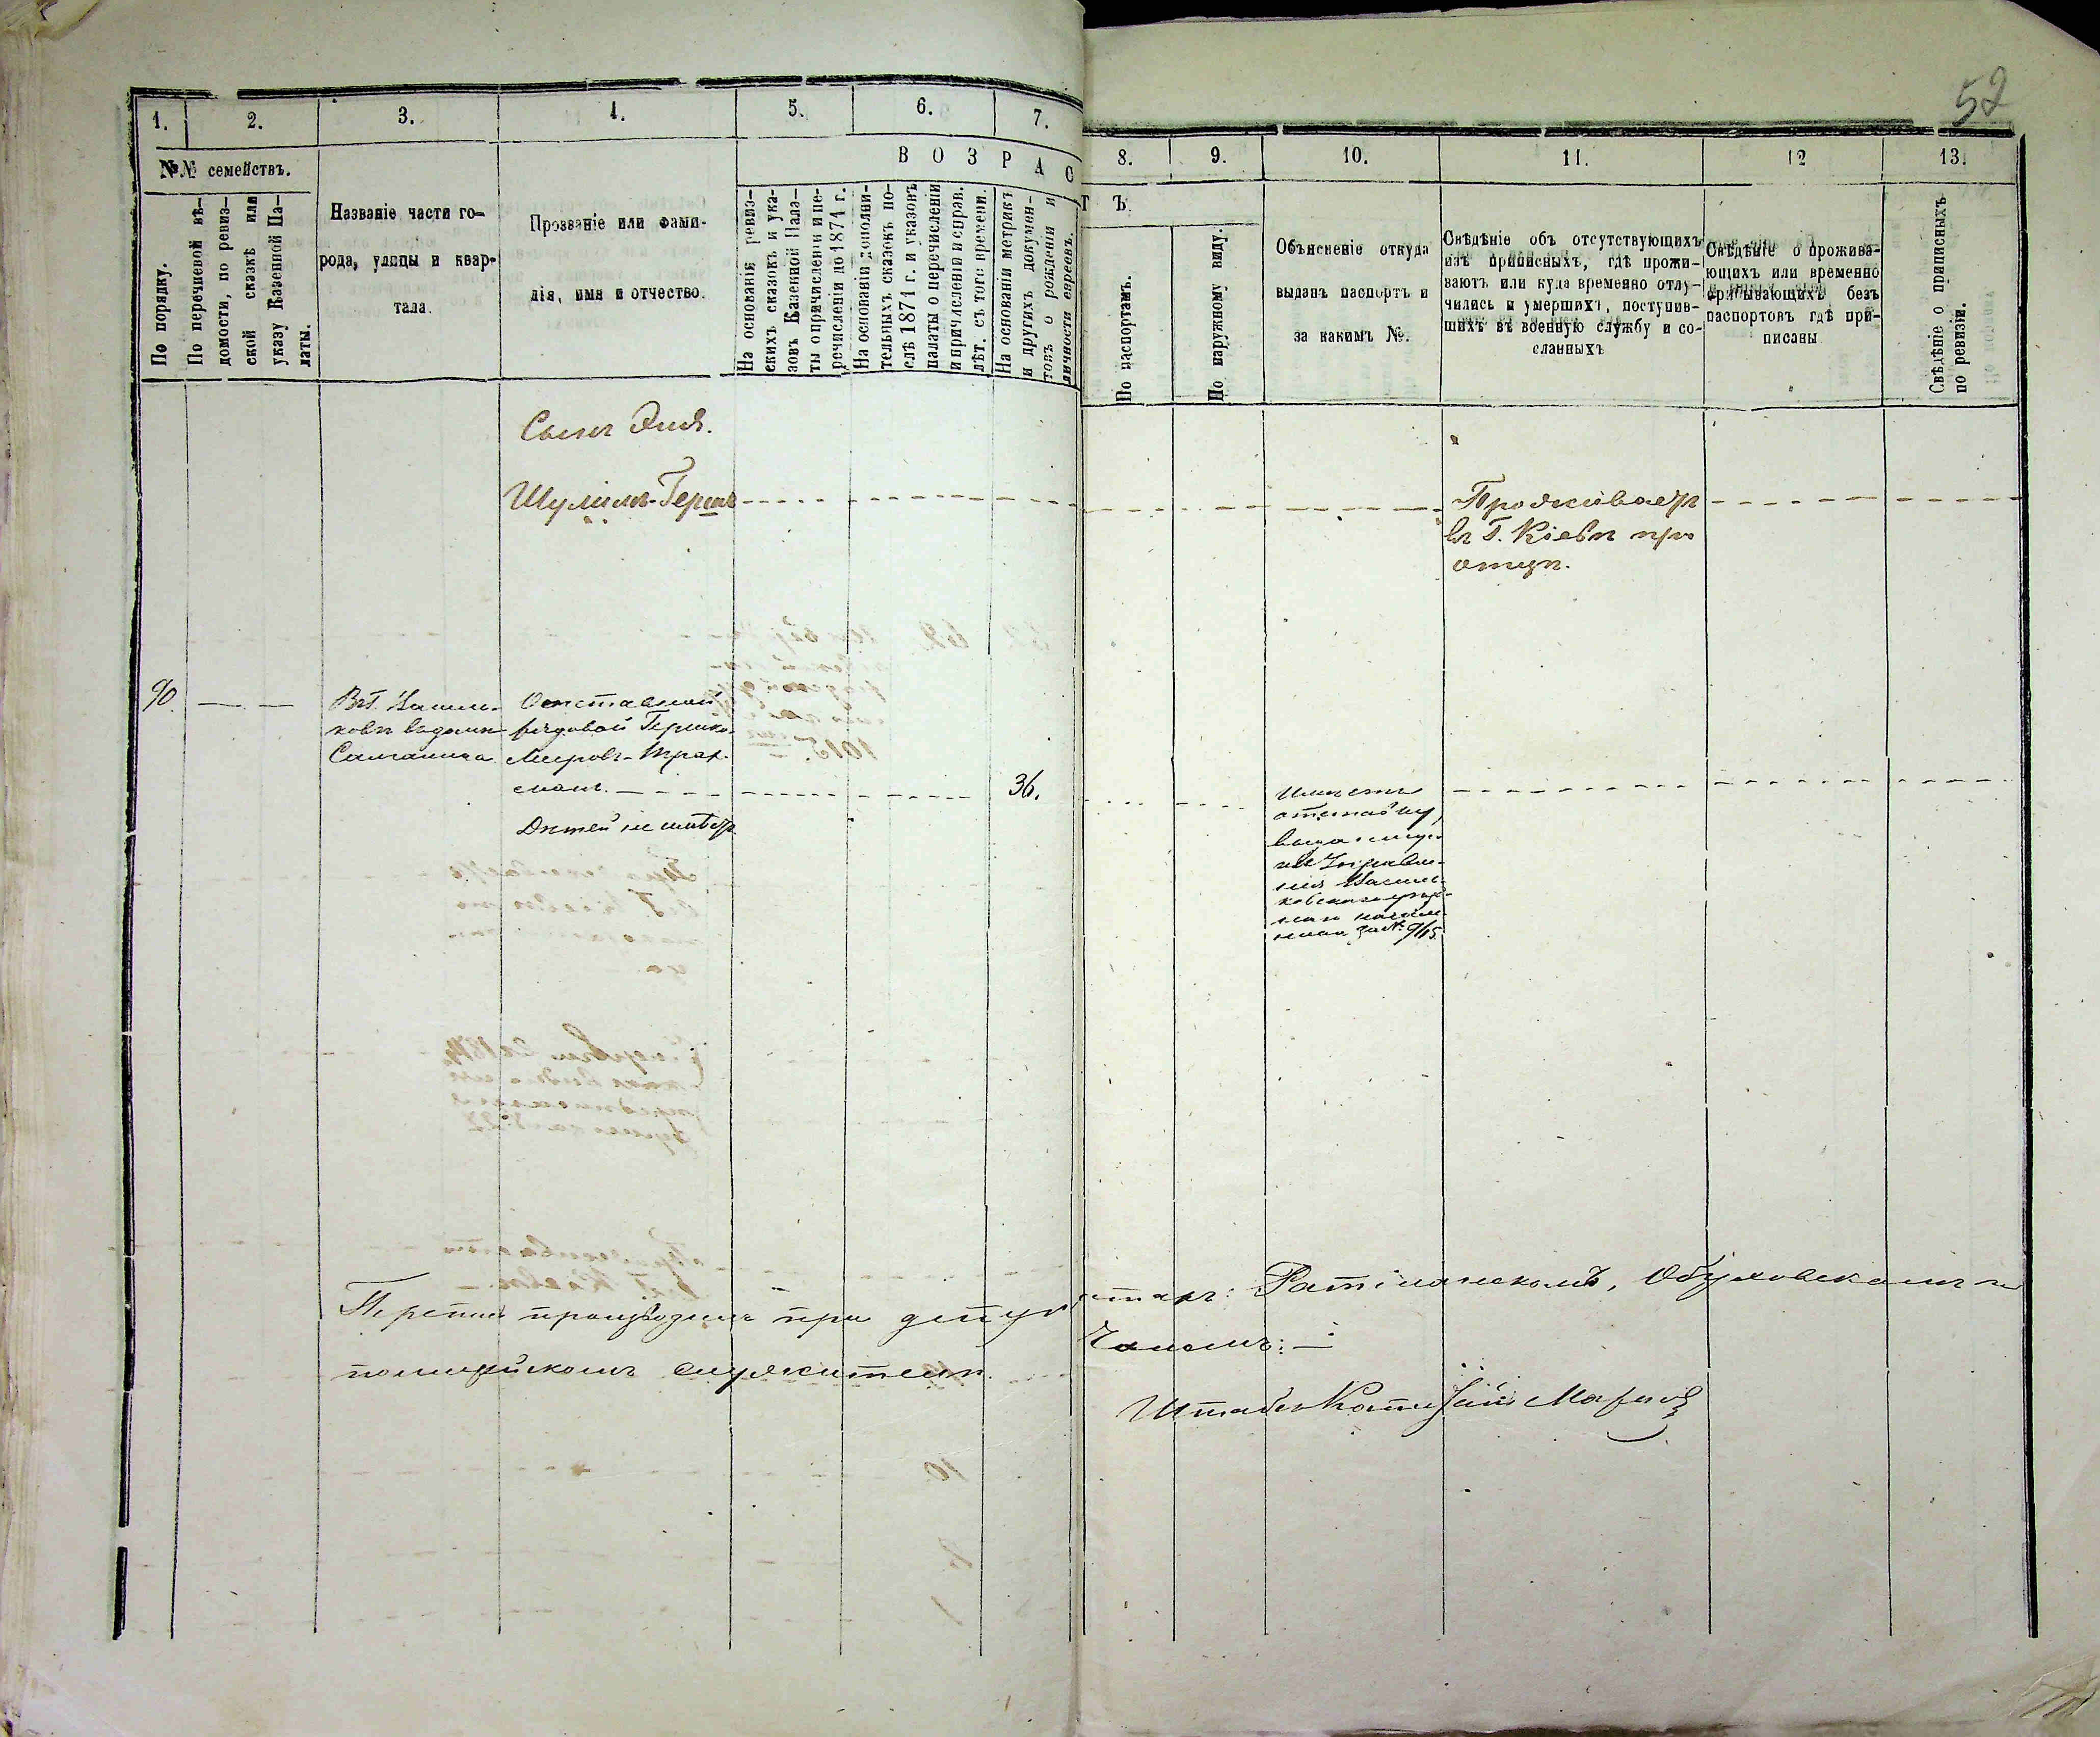 52
1.
2.
3.
4.
5.
6.
7.
8.
9.
10.
11.
12
13.
№№ семействъ.
ВОЗРАСТЪ.
По порядку.
По перечневой вѣ-
домости, по ревиз-
ской сказкѣ или
указу Казенной Па-
латы.
Названіе части го-
рода, улицы и квар-
тала.
Прозваніе или фами-
лія, имя и отчество.
На основаніи ревиз-
скихъ сказокъ и ука-
зовъ Казенной Пала-
ты о причисленіи и пе-
речисленіи до 1871 г.
На основаніи дополни-
тельныхъ сказокъ по-
слѣ 1871 г. и указовъ
палаты о перечисленіи
и причисленіи и справ.
лѣт. съ того времени.
На основаніи метрикъ
и другихъ докумен-
товъ о рожденіи и
личности евреевъ.
По паспортамъ.
По наружному виду.
Объясненіе откуда
выданъ паспортъ и
за какимъ №.
Свѣдѣніе объ отсутствующихъ
изъ приписныхъ, гдѣ прожи-
ваютъ или куда временно отлу-
чились и умершихъ, поступив-
шихъ въ военную службу и со-
сланныхъ
Свѣдѣніе о прожива-
ющихъ или временно
пребывающихъ безъ
паспортовъ гдѣ при-
писаны
Свѣдѣніе о приписныхъ
по ревизіи.
Сынъ Эля.
Шулимъ-Гершъ
Проживаетъ
въ Г. Кіевѣ при
отцѣ.
90.
Вг. Василь-
ковѣ въ домѣ
Отставной
рядовой Гершко
Меировъ-Трах-
манъ.
36.
Дѣтей не имѣетъ
Имѣетъ
отставку,
Управле-
нія Василь-
ковскаго уѣзд-
наго
за № 965.
при депутатахъ:
Обуховскомъ и
полицейскомъ служителѣ
Штабсъ Капитанъ